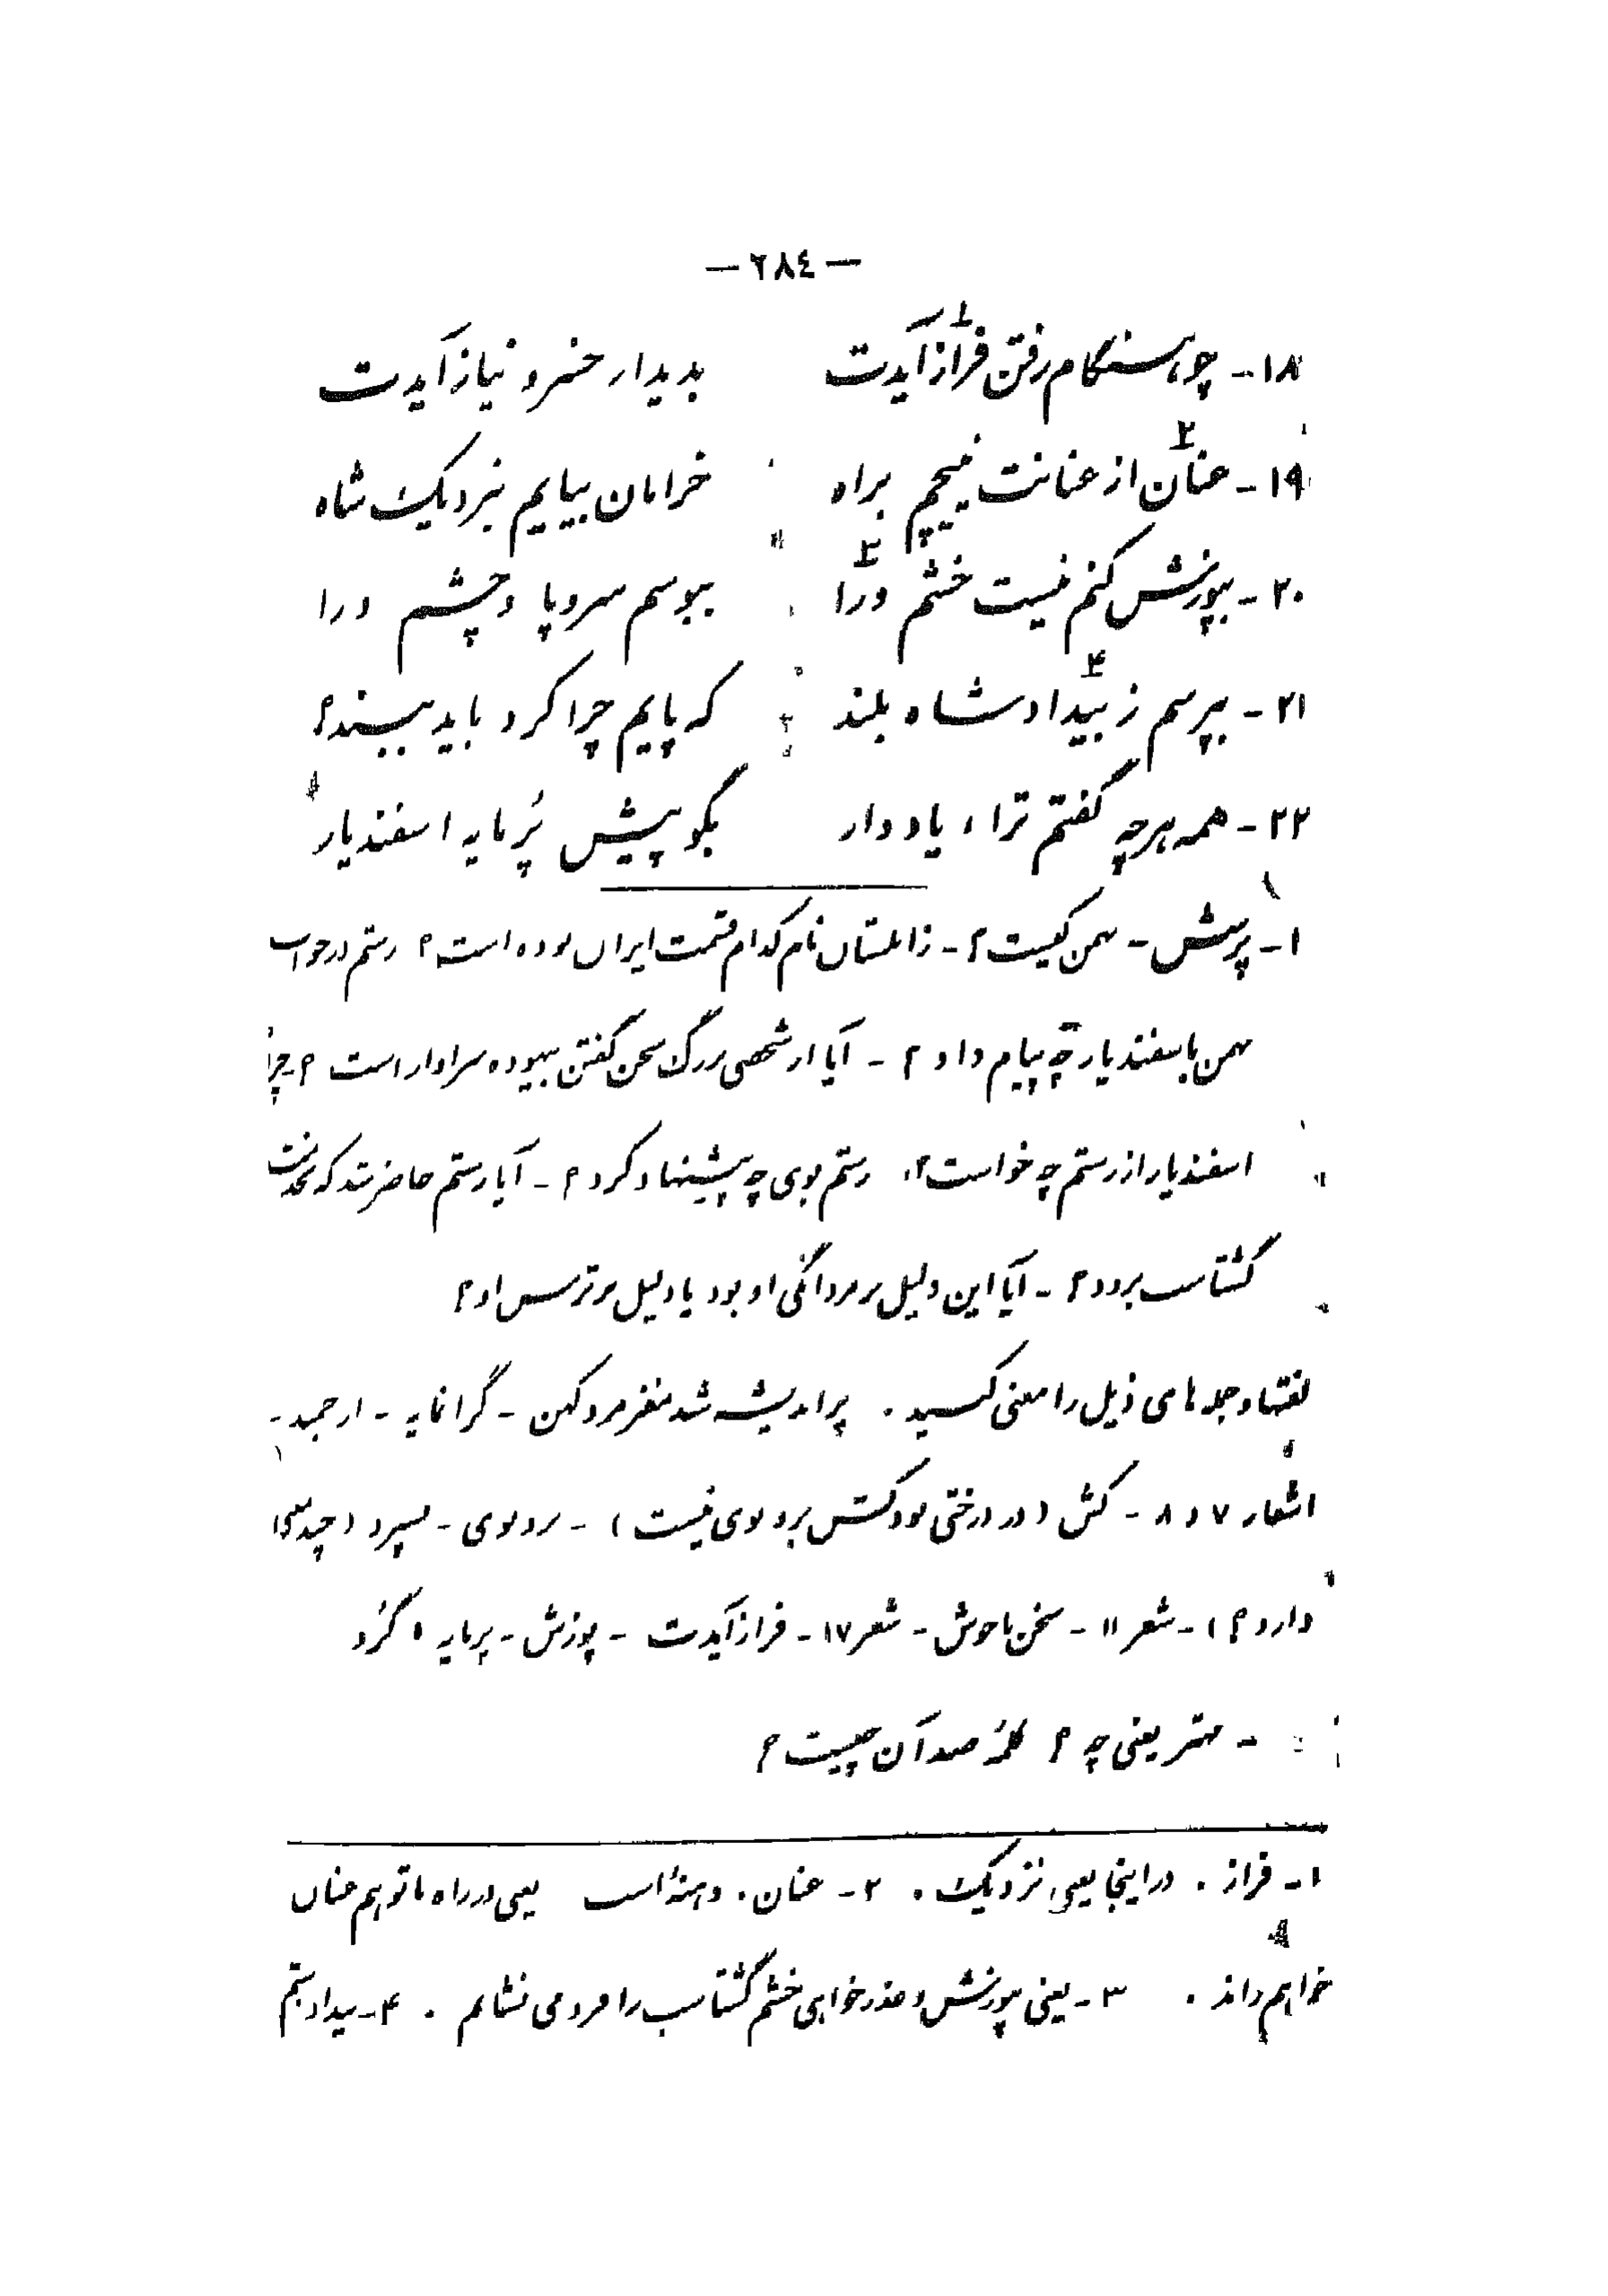 — ٢٨٤ —
۱۸- چو هنگام رفتن فراز۱ آیدت بدیدار خسرو نیاز آیدت
۱۹- عنان۲ از عنانت نپیچم براه خرامان بیایم بنزدیک شاه
۲۰- بپوزش کنم نیست خشم ورا۳ ببوسم سر و پا و چشم ورا
۲۱- بپرسم ز بیداد۴ شاه بلند که پایم چرا کرد باید ببند؟
۲۲- همه هر چه گفتم ترا، یاد دار بگو پیش پُرمایه اسفندیار
۱- پرسش- بهمن کیست؟- زابلستان نام کدام قسمت ایران بوده است؟ رستم در جواب
بهمن باسفندیار چه پیام داد؟ - آیا از شخصی بزرگ سخن گفتن بیهوده سزاوار است؟- چرا
اسفندیار از رستم چه خواست؟. رستم بوی چه پیشنهاد کرد؟ - آیا رستم حاضر شد که بخدمت
گشتاسب برود؟ - آیا این دلیل بر مردانگی او بود یا دلیل بر ترس او؟
لغتها و جمله‌های ذیل را معنی کنید. پراندیشه شد مغز مرد کهن - گرانمایه - ارجمند-
اشعار ۷ و ۸ - کش (در درختی بود کش بر و بوی نیست) - بر و بوی - بسپرد (چند معنی
دارد؟) - شعر ۱۱ - سخن ناخوش - شعر ۱۷ - فراز آیدت - پوزش - پرمایه، گُرد
- مهتر یعنی چه؟ کلمهٔ ضد آن چیست؟
۱- فراز. در اینجا یعنی نزدیک. ۲- عنان. دهنهٔ اسب یعنی در راه با تو هم عنان
خواهم راند. ۳- یعنی بپوزش و عذرخواهی خشم گشتاسب را فرو می نشانم. ۴- بیداد ستم